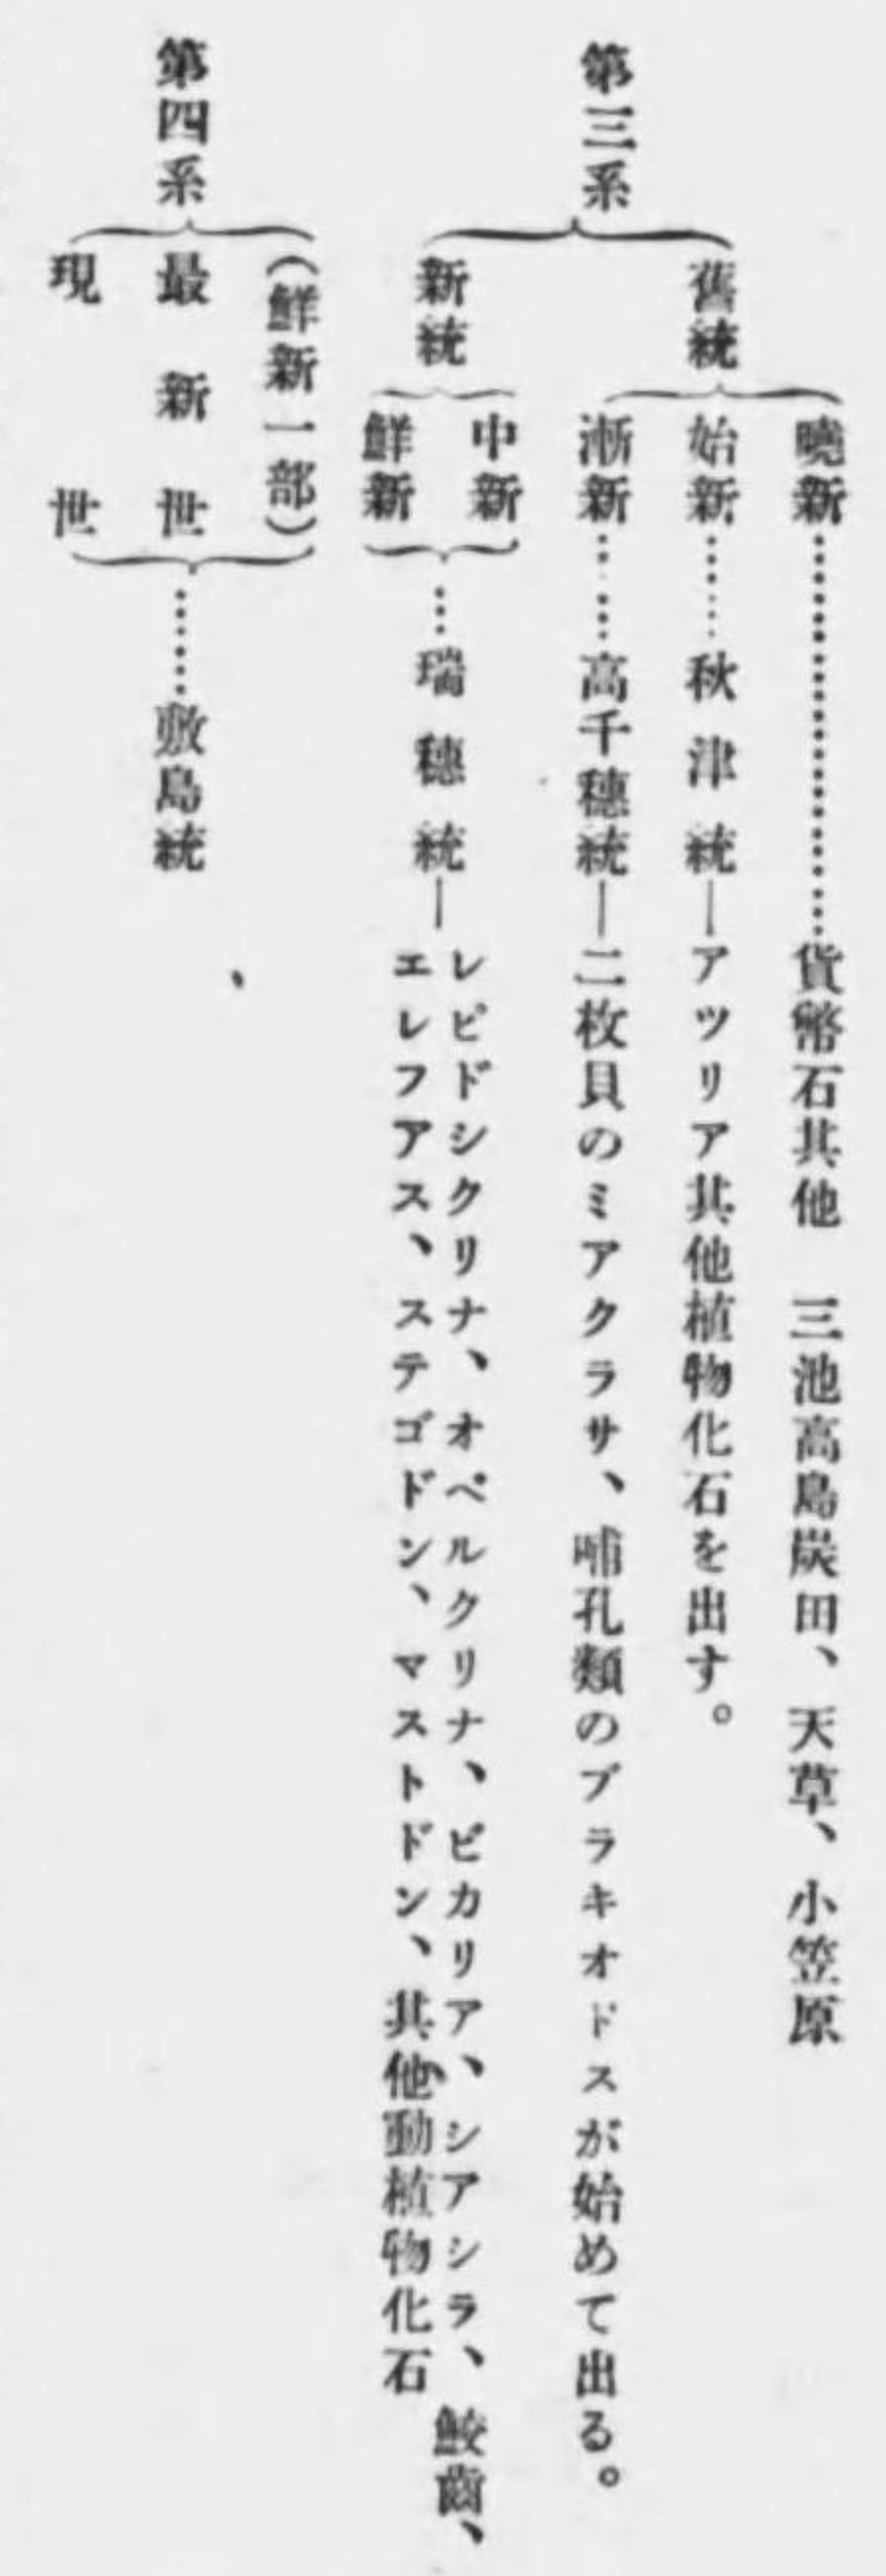 第三系
舊統
曉新………………貨幣石其他　三池高島炭田、天草、小笠原
始新……秋津統—アツリア其他植物化石を出す。
漸新……高千穗統—二枚貝のミアクラサ、哺孔類のブラキオドスが始めて出る。
新統
中新
鮮新
…瑞穗統—
レピドシクリナ、オペルクリナ、ビカリア、シアシラ、鮫齒、
エレフアス、ステゴドン、マストドン、其他動植物化石
第四系
(鮮新一部)
最新世
現世
……敷島統